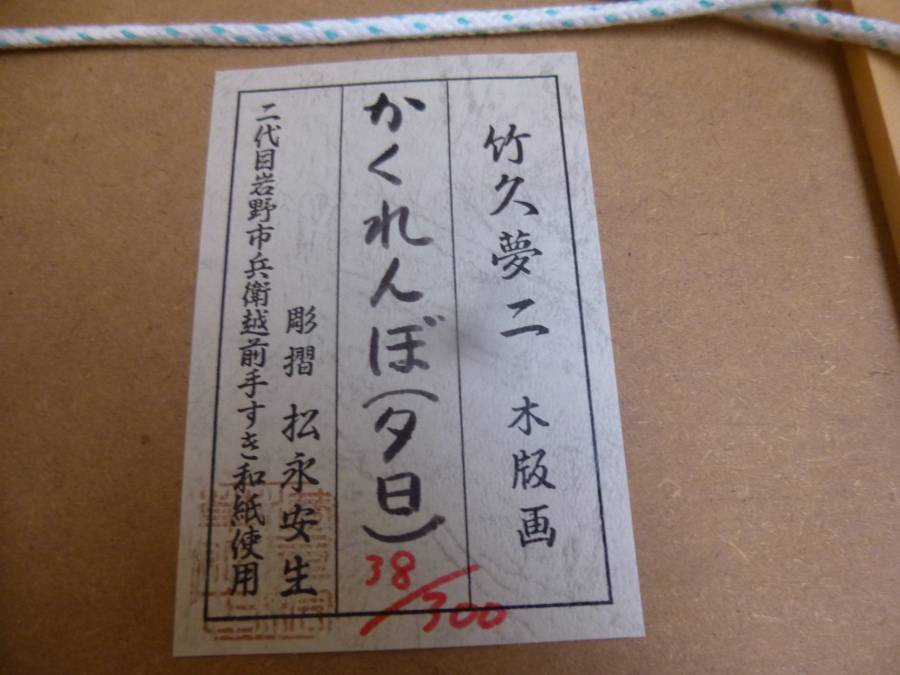 竹久夢二 木版画
かくれんぼ(夕日)
38/300
彫摺 松永安生
二代目岩野市兵衛越前手すき和紙使用